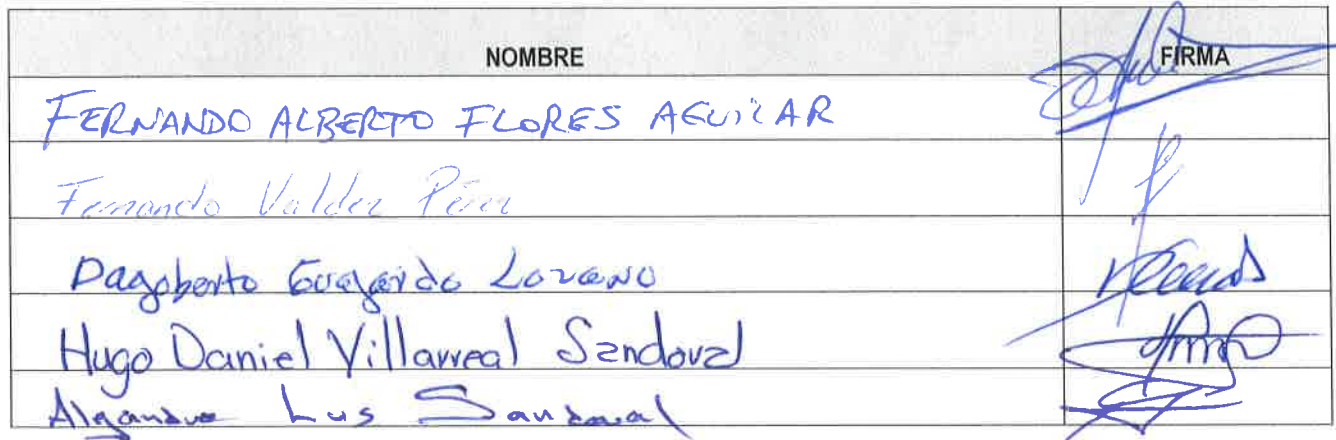 NOMBRE FIRMA
FERNANDO ALBERTO FLORES AGUILAR
Fernando Valdez Pérez
Dagoberto Guajardo Lozano
Hugo Daniel Villarreal Sandoval
Alejandro Luis Sandoval